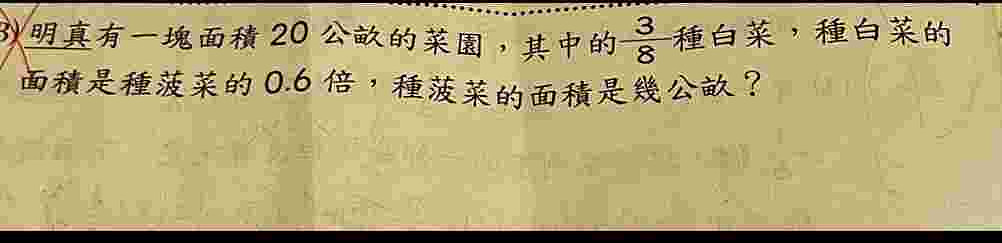 3) 明真有一塊面積 20 公畝的菜園，其中的 3/8 種白菜，種白菜的
面積是種菠菜的 0.6 倍，種菠菜的面積是幾公畝？